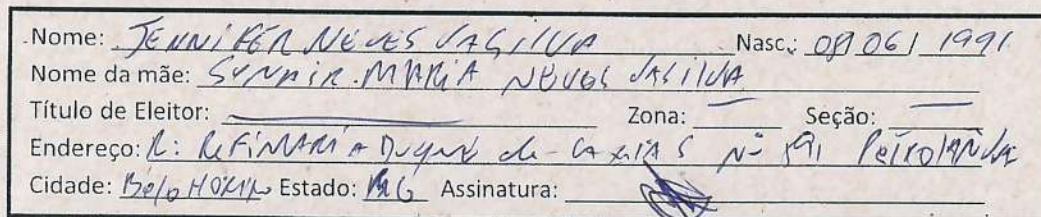 Nome: JENNIFER NEVES DA SILVA Nasc.: 08/06/1991
Nome da mãe: MARIA NEVES DA SILVA
Título de Eleitor: Zona: Seção:
Endereço: R: REFINARIA DUQUE de CAXIAS Nº 891 Petrolândia
Cidade: Belo HORIZ Estado: MG Assinatura: